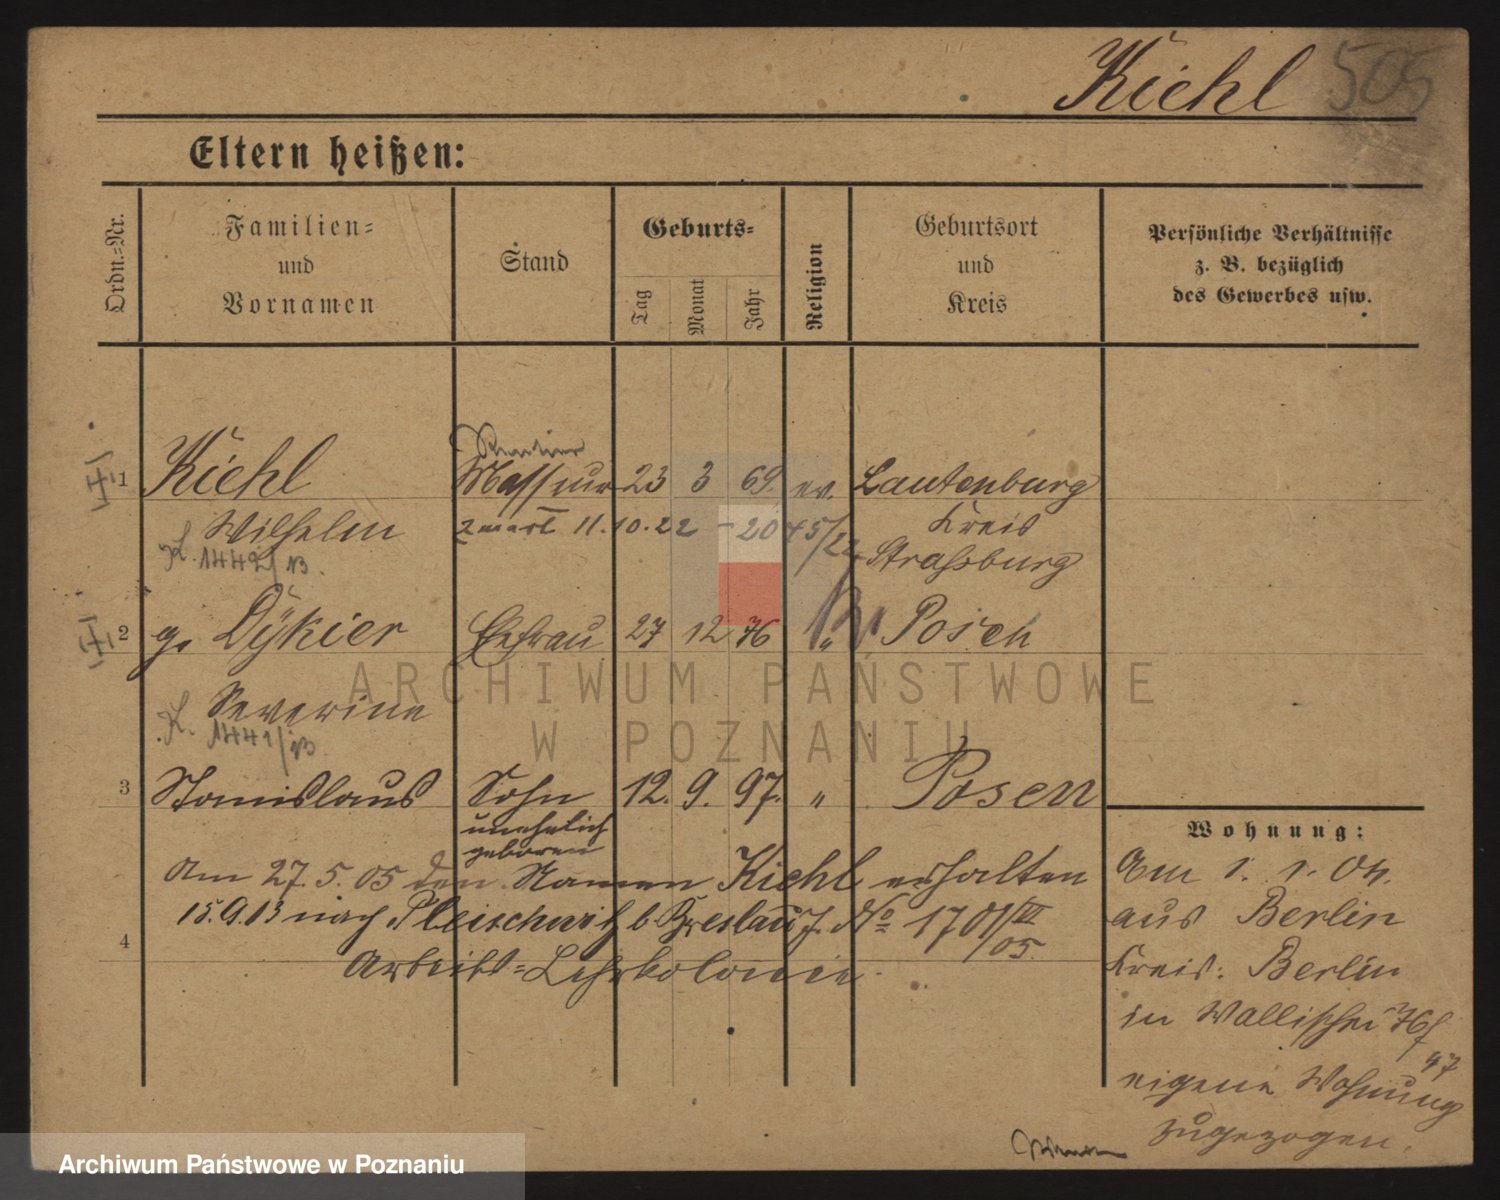 Kiehl 505
Eltern heißen:
Ordn.=Nr.
Familien=
und
Vornamen
Stand
Geburts=
Tag
Monat
Jahr
Religion
Geburtsort
und
Kreis
Persönliche Verhältnisse
z. B. bezüglich
des Gewerbes usw.
1 Kiehl Masseur 23 3 69. ev. Lautenburg
Wilhelm zmarł 11.10.22 Kreis
K. 1442/B. Straßburg
2 g. Dÿkier Ehefrau 27 12 76 " Posen
Severine
K. 1441/B
3 Stanislaus Sohn 12. 9. 97. " Posen
unehelich
geboren
Am 27.5.05 den Namen Kiehl erhalten
15.9.13 nach b. Breslau J. No 1701/III 05.
4 Arbeits=Lehrkolonie
Wohnung:
Am 1. 1. 04.
aus Berlin
Kreis: Berlin
in Wallischei 76
47
eigene Wohnung
zugezogen.
ARCHIWUM PAŃSTWOWE
W POZNANIU
Archiwum Państwowe w Poznaniu